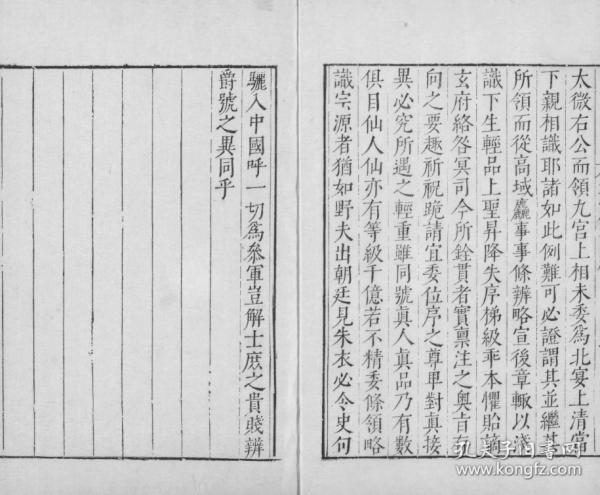 太微右公而領九宫上相未委爲北宴上清當
下親相識耶諸如此例難可必證謂其並繼其
所領而從高域麤事事條辨略宣後章輒以淺
識下生輕品上聖昇降失序梯級乖本懼貽謫
玄府絡咎冥司今所銓貫者實稟注之奥旨存
向之要趣祈祝跪請宜委位序之尊卑對真接
異必究所遇之輕重雖同號眞人眞品乃有數
俱目仙人仙亦有等級千億若不精委條領略
識宗源者猶如野夫出朝廷見朱衣必令史句
驪入中國呼一切爲參軍豈解士庶之貴賤辨
爵號之異同乎
孔夫子旧书网
www.kongfz.com